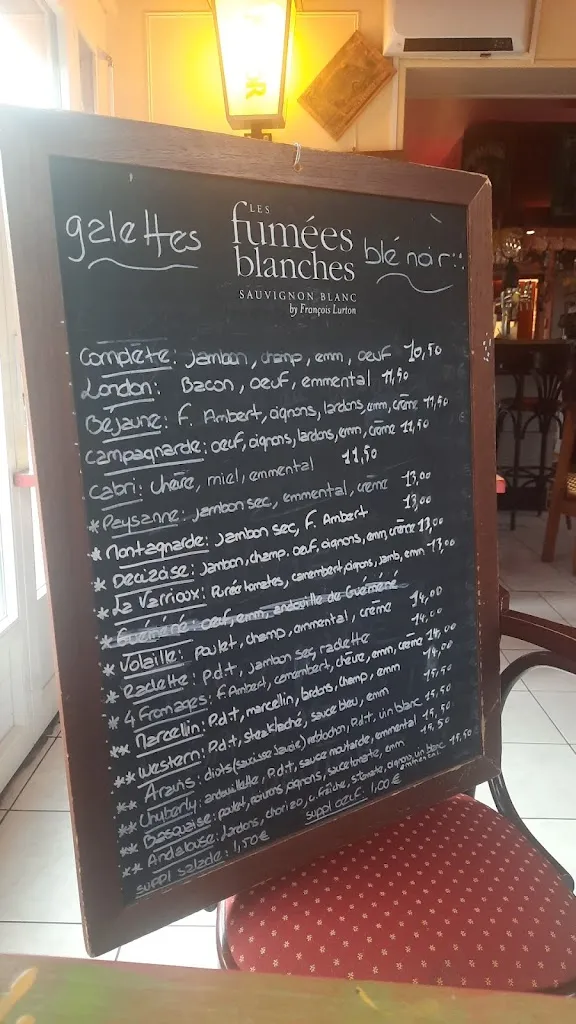 LES
galettes fumées blé noir
blanches
SAUVIGNON BLANC
by François Lurton
Complète: Jambon, champ, emm, oeuf 10,50
London: Bacon, oeuf, emmental 11,50
Bejaune: F. Ambert, oignons, lardons, emm, crème 11,50
Campagnarde: oeuf, oignons, lardons, emm, crème 11,50
Cabri: Chèvre, miel, emmental 11,50
* Paysanne: jambon sec, emmental, crème 13,00
* Montagnarde: Jambon sec, F. Ambert 13,00
* Decizoise: Jambon, champ. oeuf, oignons, emm, crème 13,00
* La Varrioux: Purée tomates, camembert, oignons, jamb, emm 13,00
* Guéméné: oeuf, emm, andouille de Guéméné
* Volaille: Poulet, champ, emmental, crème 14,00
* Raclette: P.d.t, jambon sec, raclette 14,00
* 4 Fromages: F. Ambert, camembert, chèvre, emm, crème 14,00
** Marcellin: P.d.t, marcellin, lardons, champ, emm 14,00
** Western: P.d.t, steak haché, sauce bleu, emm 15,50
** Aravis: diots (saucisse Savoie) reblochon, P.d.t, vin blanc 15,50
** andouillette, P.d.t, sauce moutarde, emmental 15,50
** Basquaise: poulet, poivrons, oignons, sauce tomate, emm 15,50
** Andalouse: lardons, chorizo, c. fraîche, s. tomate, oignons, vin blanc emmental 15,50
suppl salade: 1,50€ suppl oeuf: 1,00€